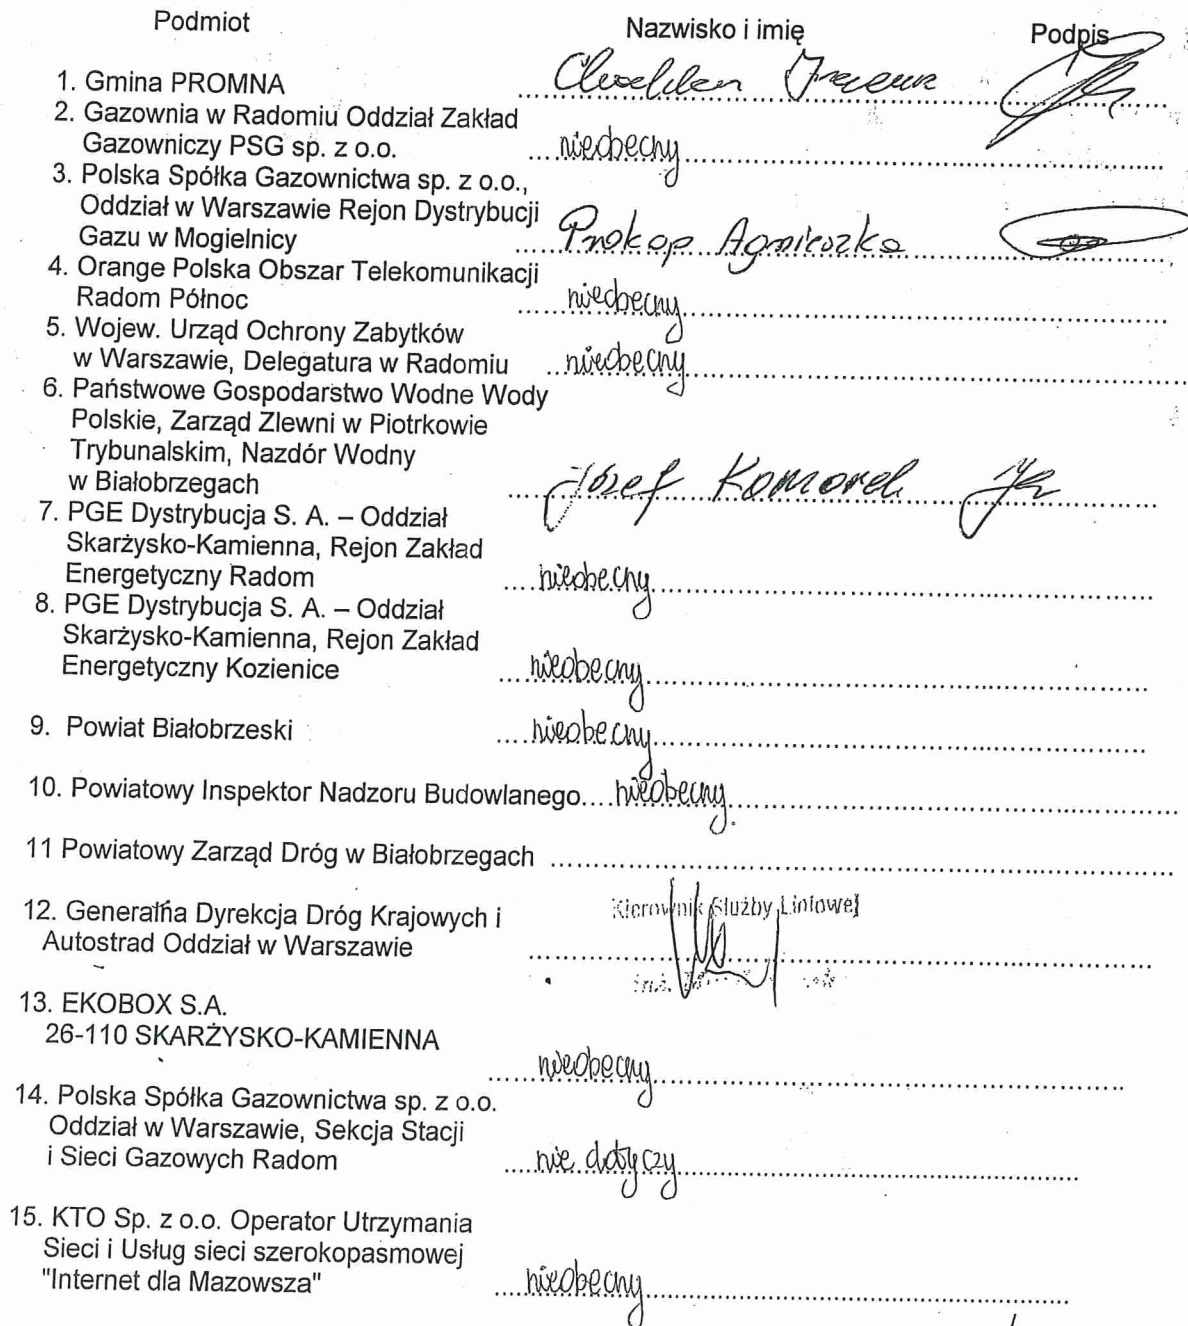 Podmiot Nazwisko i imię Podpis
1. Gmina PROMNA
2. Gazownia w Radomiu Oddział Zakład
Gazowniczy PSG sp. z o.o. nieobecny
3. Polska Spółka Gazownictwa sp. z o.o.,
Oddział w Warszawie Rejon Dystrybucji
Gazu w Mogielnicy Prokop Agnieszka
4. Orange Polska Obszar Telekomunikacji
Radom Północ nieobecny
5. Wojew. Urząd Ochrony Zabytków
w Warszawie, Delegatura w Radomiu nieobecny
6. Państwowe Gospodarstwo Wodne Wody
Polskie, Zarząd Zlewni w Piotrkowie
Trybunalskim, Nazdór Wodny
w Białobrzegach Józef Komorek
7. PGE Dystrybucja S. A. – Oddział
Skarżysko-Kamienna, Rejon Zakład
Energetyczny Radom nieobecny
8. PGE Dystrybucja S. A. – Oddział
Skarżysko-Kamienna, Rejon Zakład
Energetyczny Kozienice nieobecny
9. Powiat Białobrzeski nieobecny
10. Powiatowy Inspektor Nadzoru Budowlanego nieobecny
11 Powiatowy Zarząd Dróg w Białobrzegach
12. Generalna Dyrekcja Dróg Krajowych i Kierownik Służby Liniowej
Autostrad Oddział w Warszawie
inż.
13. EKOBOX S.A.
26-110 SKARŻYSKO-KAMIENNA
nieobecny
14. Polska Spółka Gazownictwa sp. z o.o.
Oddział w Warszawie, Sekcja Stacji
i Sieci Gazowych Radom nie dotyczy
15. KTO Sp. z o.o. Operator Utrzymania
Sieci i Usług sieci szerokopasmowej
"Internet dla Mazowsza" nieobecny